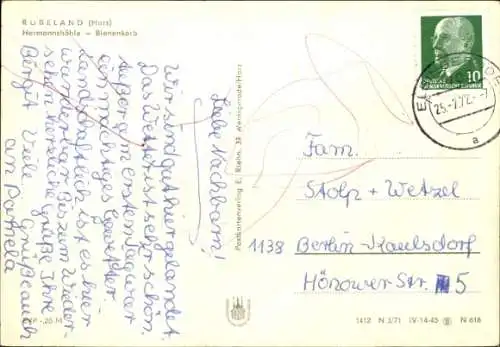 RÜBELAND (Harz)
Hermannshöhle – Bienenkorb
Liebe Nachbarn!
Wir sind gut hier gelandet.
Das Wetter ist sehr schön.
Außer am ersten Tag war
ein mächtiges Gewitter.
Landschaftlich ist es hier
wunderbar. Bis zum Wieder-
sehn herzliche Grüße Ihre
Birgit Viele Grüße auch
an Daniela
Postkartenverlag E. Riehn, 37 Wernigerode/Harz
10
DEUTSCHE
DEMOKRATISCHE REPUBLIK
25.-7.72.-
a
Fam.
Stolp + Wetzel
1138 Berlin-Kaulsdorf
Hönower Str. 5
1412 N 3/71 IV-14-45 N 616